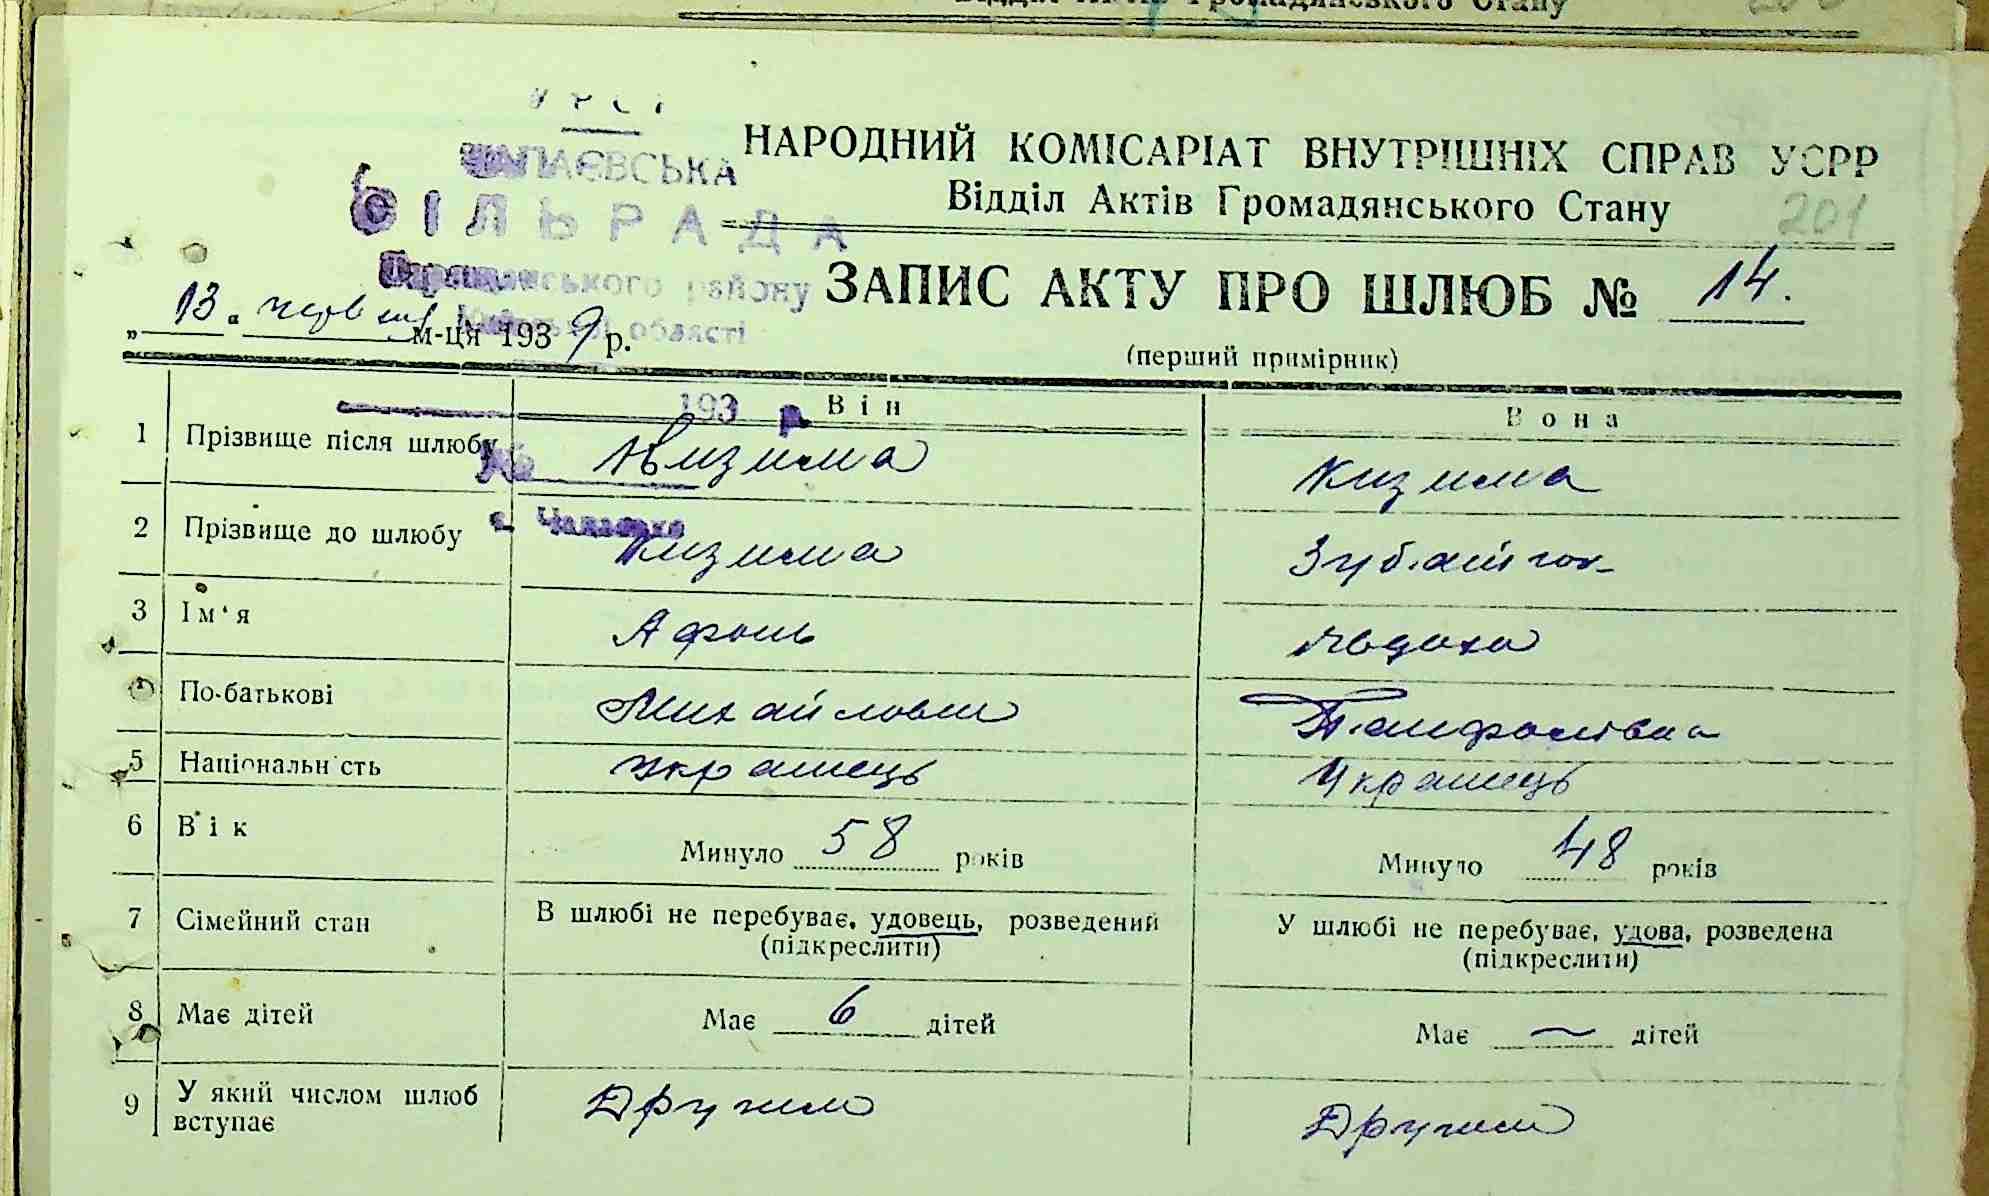 НАРОДНИЙ КОМІСАРІАТ ВНУТРІШНІХ СПРАВ УСРР
Відділ Актів Громадянського Стану
201
ЧАПАЄВСЬКА
СІЛЬРАДА
ського району
області
ЗАПИС АКТУ ПРО ШЛЮБ № 14.
„13" червня м-ця 1939 р.
(перший примірник)
193 р.
Він Вона
1 Прізвище після шлюбу Кизима Кизима
с. Чапаєвка
2 Прізвище до шлюбу Кизима
3 Ім'я
По-батькові Михайлович Панфилівна
5 Національність Українець Українець
6 Вік Минуло 58 років Минуло 48 років
7 Сімейний стан В шлюбі не перебуває, удовець, розведений У шлюбі не перебуває, удова, розведена
(підкреслити) (підкреслити)
8 Має дітей Має 6 дітей Має — дітей
9 У який числом шлюб вступає Другим Другим